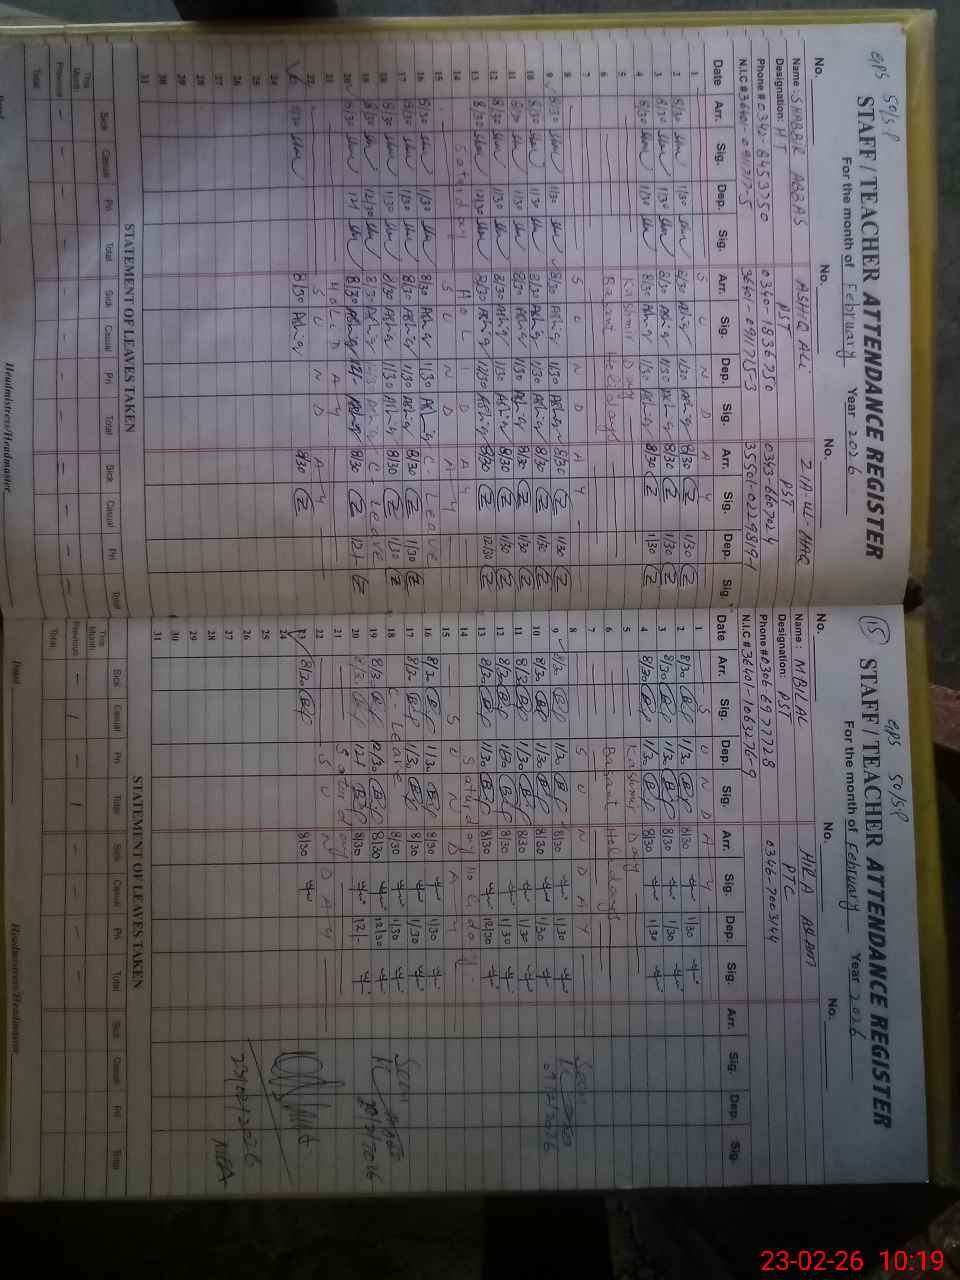 GPS 50/S.P
STAFF / TEACHER ATTENDANCE REGISTER
For the month of February Year 2026
No. No. No.
Name : SHABBIR ABBAS ASHIQ ALI ZIA-UL-HAQ
Designation: HT PST PST
Phone # 0342-8453750 0340-1836750 0343-6607024
N.I.C # 36401-0911717-5 36401-0911715-3 35501-0229819-1
Date Arr. Sig. Dep. Sig. Arr. Sig. Dep. Sig. Arr. Sig. Dep. Sig.
1 SUNDAY
2 8/30 1/30 8/30 Ashiq 1/30 Ashiq 8/30 1/30
3 8/30 1/30 8/30 Ashiq 1/30 Ashiq 8/30 1/30
4 8/30 1/30 8/30 Ashiq 1/30 Ashiq 8/30 1/30
5 Kashmir Day
6 Basant Holidays
7
8 SUNDAY
9 8/30 1/30 8/30 Ashiq 1/30 Ashiq 8/30 1/30
10 8/30 1/30 8/30 Ashiq 1/30 Ashiq 8/30 1/30
11 8/30 1/30 8/30 Ashiq 1/30 Ashiq 8/30 1/30
12 8/30 1/30 8/30 Ashiq 1/30 Ashiq 8/30 1/30
13 8/30 12/30 8/30 Ashiq 12/30 Ashiq 8/30 12/30
14 Saturday HOLIDAY
15 SUNDAY
16 8/30 1/30 8/30 Ashiq 1/30 Ashiq C-Leave
17 8/30 1/30 8/30 Ashiq 1/30 Ashiq 8/30 1/30
18 8/30 1/30 8/30 Ashiq 1/30 Ashiq 8/30 1/30
19 8/30 12/30 8/30 Ashiq Ashiq C-Leave
20 8/30 12/- 8/30 Ashiq 12/- Ashiq 8/30 12/-
21 HOLIDAY
22 SUNDAY
8/30 8/30 Ashiq 8/30
24
25
26
27
28
29
30
31
STATEMENT OF LEAVES TAKEN
Sick Casual Pri Total Sick Casual Pri Total Sick Casual Pri Total
This Month
Previous
Total
Headmistress/Headmaster
15 GPS 50/S.P
STAFF / TEACHER ATTENDANCE REGISTER
For the month of February Year 2026
No. No. No.
Name : M BILAL HIRA ASLAM
Designation: PST PTC
Phone # 0306 6977728 0346-7003144
N.I.C # 36401-1063276-9
Date Arr. Sig. Dep. Sig. Arr. Sig. Dep. Sig. Arr. Sig. Dep. Sig.
1 SUNDAY
2 8/30 1/30 8/30 1/30
3 8/30 1/30 8/30 1/30
4 8/30 1/30 8/30 1/30
5 Kashmir Day
6 Basant Holidays
7
8 SUNDAY
9 8/30 1/30 8/30 1/30 Seen
10 8/30 1/30 8/30 1/30
11 8/30 1/30 8/30 1/30
12 8/30 1/30 8/30 1/30
13 8/30 1/30 8/30 12/30
14 Saturday Holiday
15 SUNDAY
16 8/30 1/30 8/30 1/30
17 8/30 1/30 8/30 1/30
18 C-Leave 8/30 1/30 Seen
19 8/30 12/30 8/30 12/30
20 8/30 12/- 8/30 12/- 20/2/2026
21 Saturday
22 SUNDAY
23 8/30 8/30
24
25
26 23/02/2026
27
28 MEA
29
30
31
STATEMENT OF LEAVES TAKEN
Sick Casual Pri Total Sick Casual Pri Total Sick Casual Pri Total
This Month
Previous
Total
Dated Headmistress/Headmaster
23-02-26 10:19